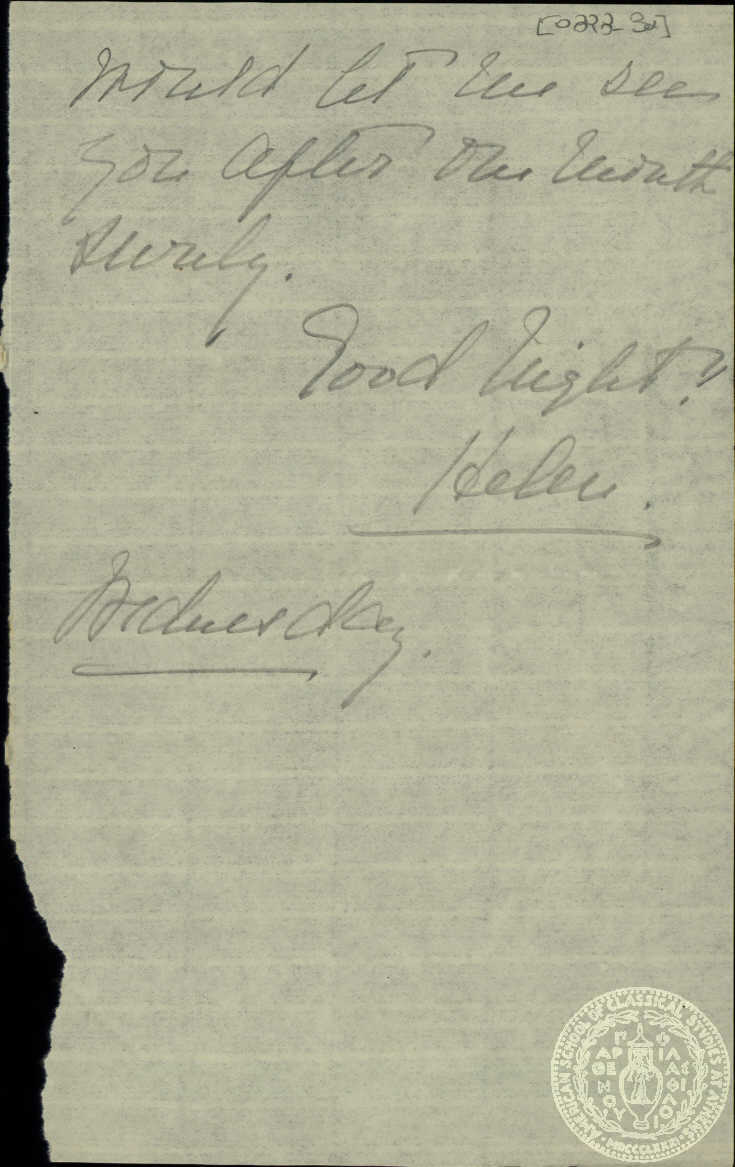 [0222-3v]
would let me see
you after one month
surely.
Good Night!
Helen.
Wednesday.
AMERICAN SCHOOL OF CLASSICAL STUDIES AT ATHENS
ΠΑΡΘΕΝΟΥ ΦΙΛΑΣ ΦΙΛΟΙ
MDCCCLXXXI